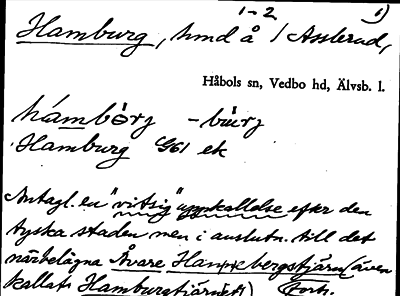 1-2 1)
Hamburg, hmd å / Asslerud,
Håbols sn, Vedbo hd, Älvsb. l.
hámbòrg -bùrg
Hamburg G61 ek
Antagl. en "vitsig" uppkallelse efter den
tyska staden men i anslutn. till det
närbelägna Åvare Hampebergstjärn (även
kallats Hamburgtjärnet) (forts.